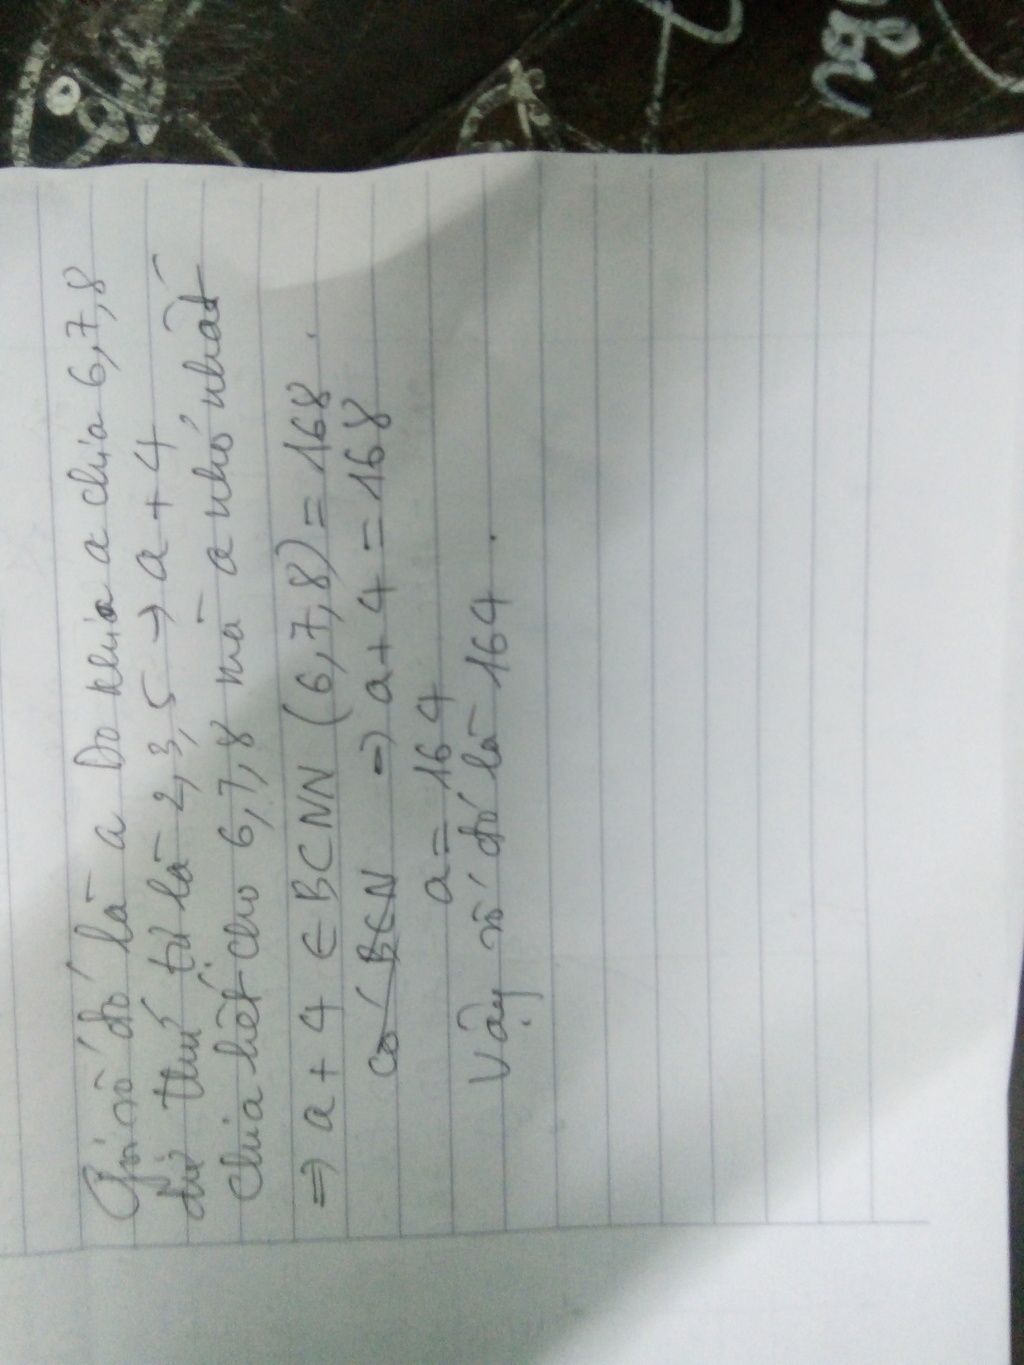 Gọi số đó là a Do khia a chia 6,7,8
dư thứ tự là 2,3,5 → a + 4
chia hết cho 6,7,8 mà a nhỏ nhất
⇒ a + 4 ∈ BCNN (6,7,8) = 168.
có BCN ⇒ a + 4 = 168
a = 164
Vậy số đó là 164.